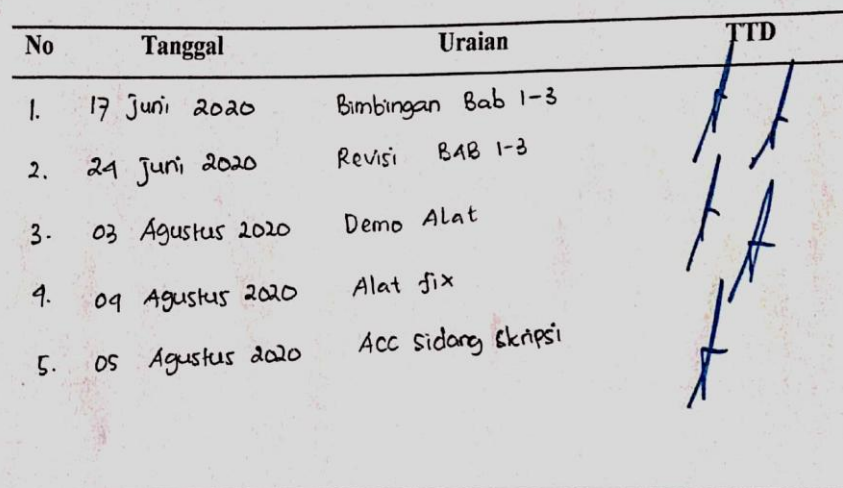 No Tanggal Uraian TTD
1. 17 Juni 2020 Bimbingan Bab 1-3
2. 24 Juni 2020 Revisi BAB 1-3
3. 03 Agustus 2020 Demo Alat
4. 04 Agustus 2020 Alat fix
5. 05 Agustus 2020 Acc Sidang Skripsi